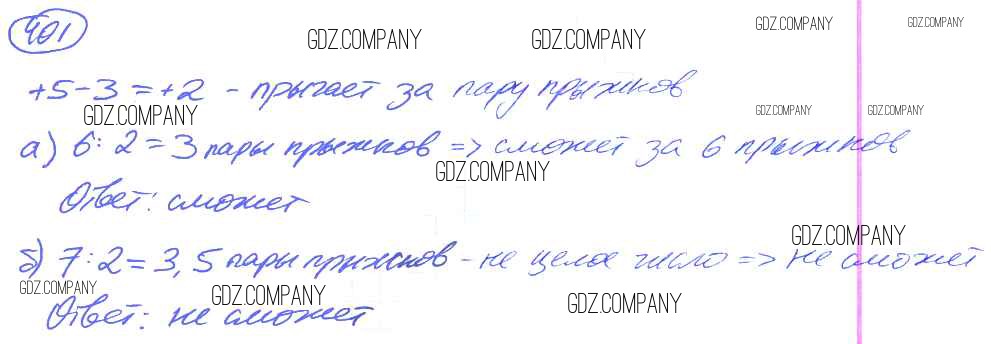 401
GDZ.COMPANY GDZ.COMPANY GDZ.COMPANY GDZ.COMPANY
+5-3=+2 - прыгает за пару прыжков
GDZ.COMPANY GDZ.COMPANY GDZ.COMPANY
а) 6:2=3 пары прыжков => сможет за 6 прыжков
GDZ.COMPANY
Ответ: сможет
GDZ.COMPANY
б) 7:2=3,5 пары прыжков - не целое число => не сможет
GDZ.COMPANY GDZ.COMPANY GDZ.COMPANY
Ответ: не сможет